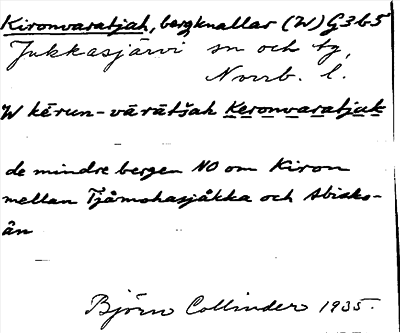 Kironvaratjah, bergknallar (W) G365
Jukkasjärvi sn och tg,
Norrb. l.
W kērun-vārātšah Keronvaratjak
de mindre bergen NO om Kiron
mellan Tjåmohasjåkka och Abisko-
ån
Björn Collinder 1935.